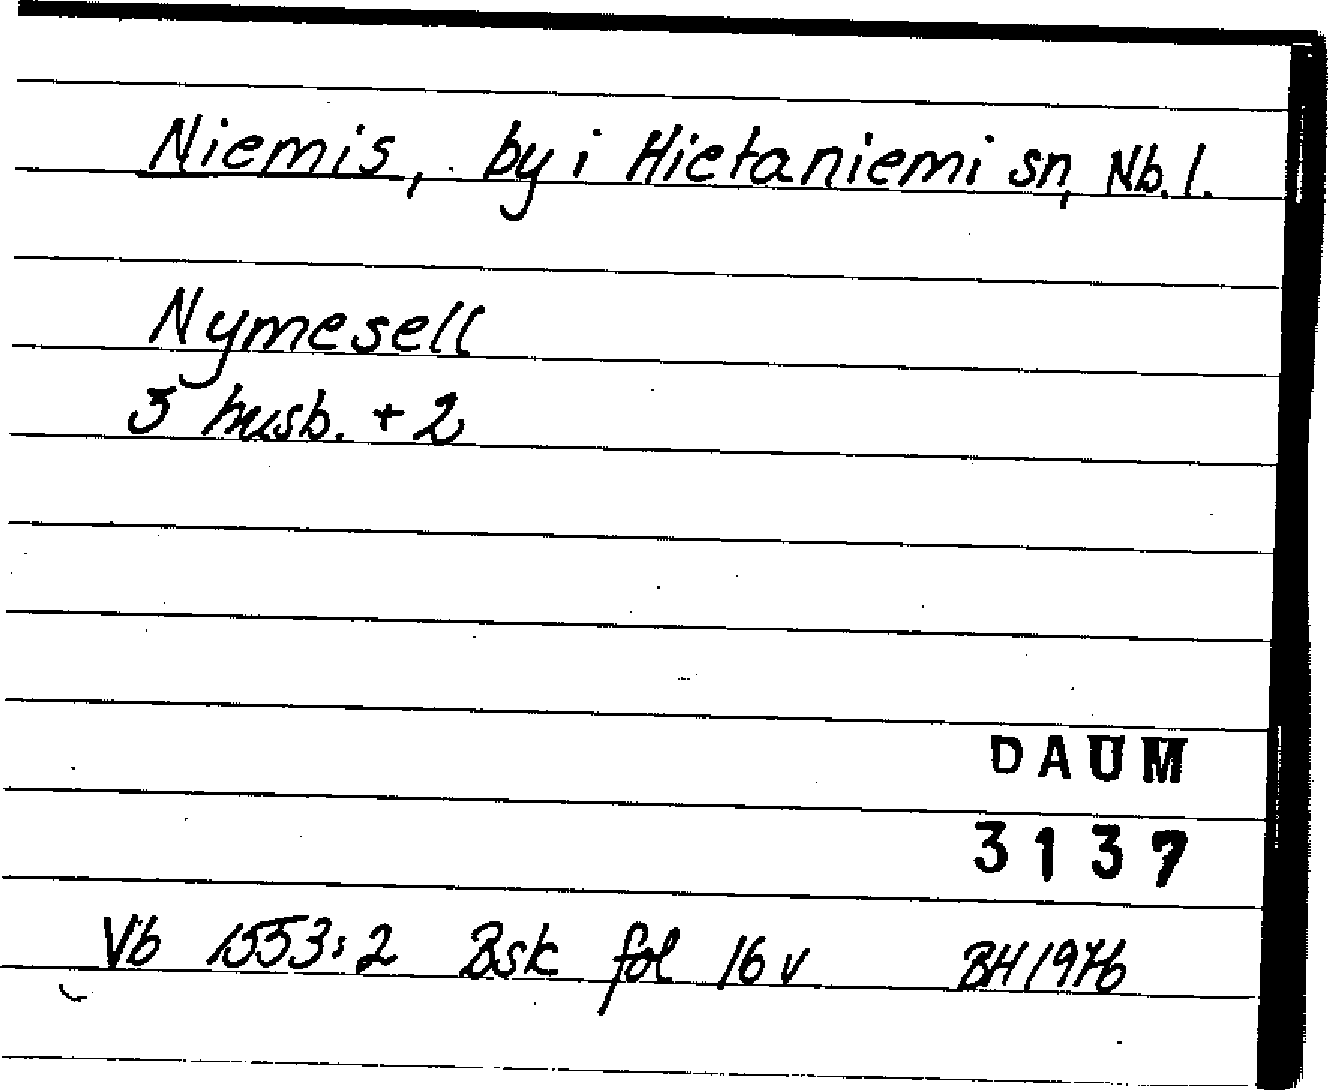 Niemis, by i Hietaniemi sn, Nb. l.
Nymesell
5 husb. + 2
DAUM
3137
Vb 1553:2 Bsk fol 16 v BH 1976